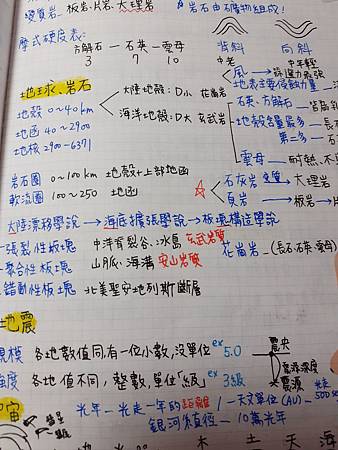 變質岩 板岩、片岩、大理岩
岩石由礦物組成!
摩式硬度表:
方解石 — 石英 — 雲母
3 7 10
背斜 向斜
地球、岩石
地殼 0~40km
大陸地殼: D小 花崗岩
海洋地殼: D大 玄武岩
地函 40~2900
地核 2900~6371
岩石圈 0~100km 地殼+上部地函
軟流圈 100~250 地函
風
地表主侵蝕力量
石英、方解石
地殼含量最多
第三多
雲母 — 耐熱、不
石灰岩 變質 大理岩
頁岩 板岩 — 片
大陸漂移學說 → 海底擴張學說 → 板塊構造學說
張裂性板塊 中洋脊裂谷、冰島 玄武岩質
聚合性板塊 山脈、海溝 安山岩質
花崗岩 — (長石、石英、雲母)
錯動性板塊 北美聖安地列斯斷層
地震
規模 各地數值同,有一位小數,沒單位 ex 5.0
強度 各地值不同,整數,單位「級」 ex 3級
震央
震源深度
震源
宙
光年 — 光走一年的距離
1天文單位(AU)
銀河系直徑 — 10萬光年
木 土 天 海